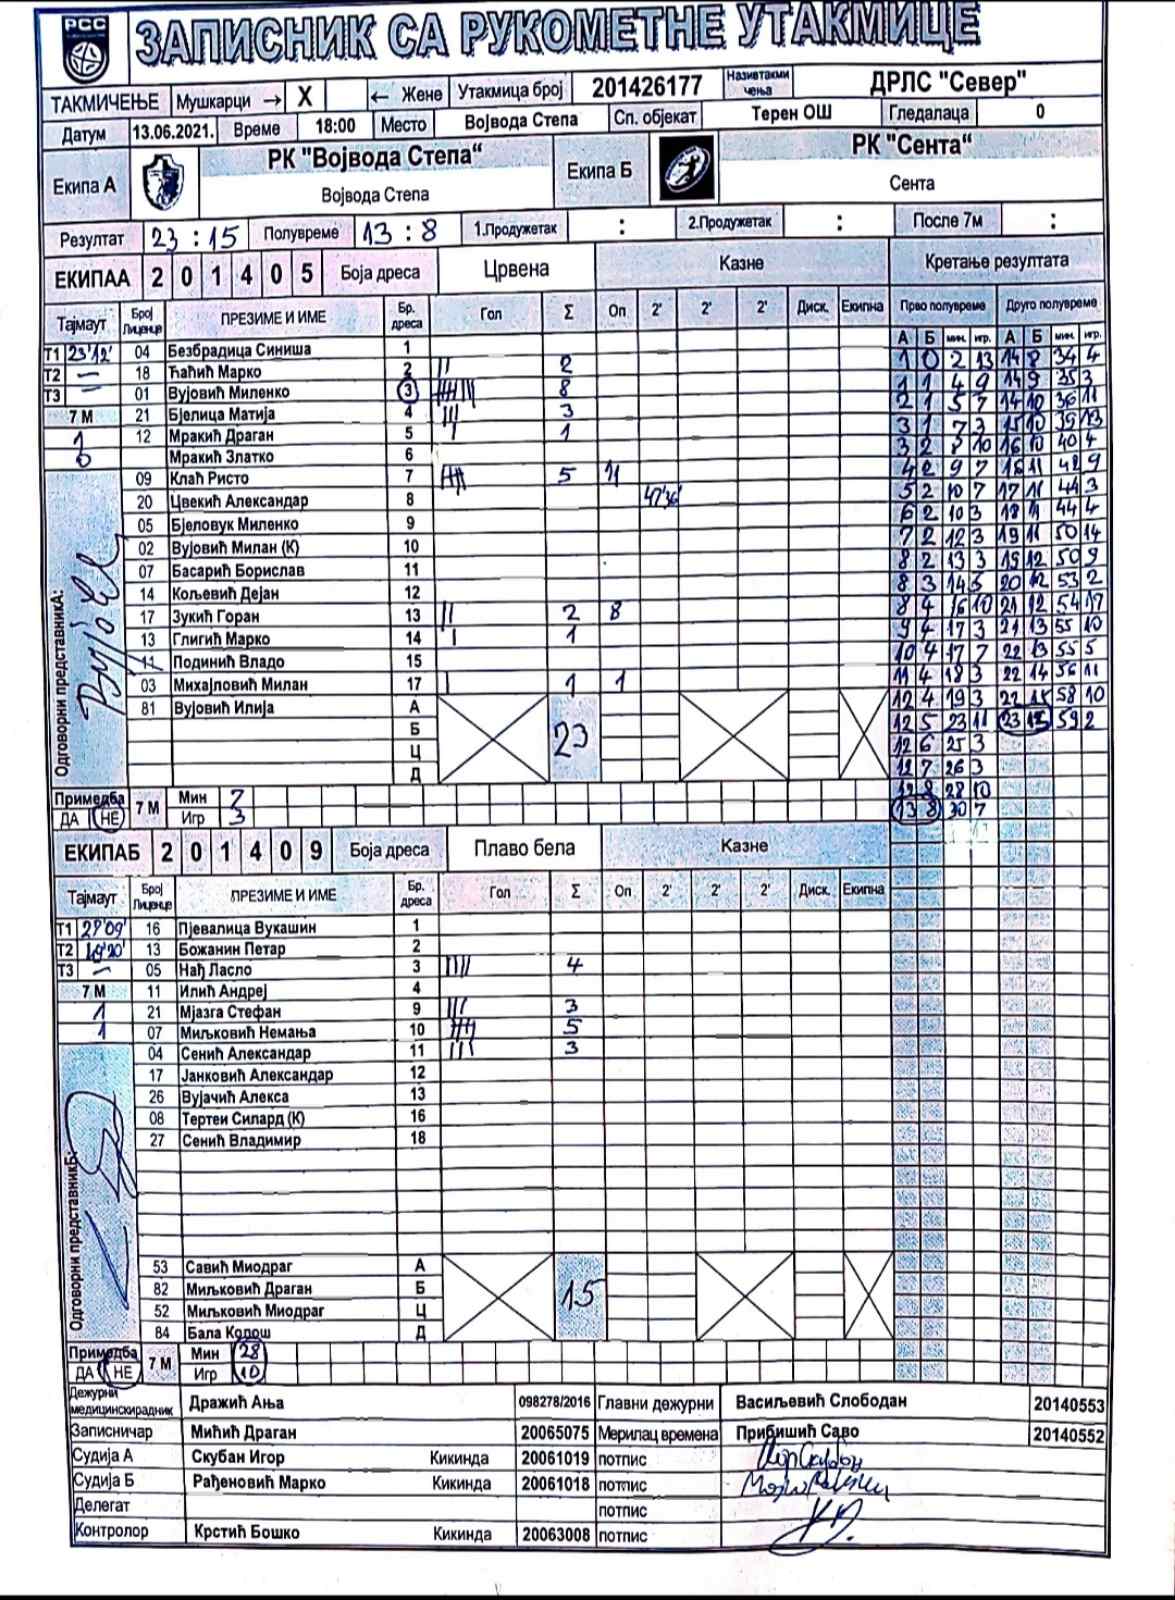 РСС
ЗАПИСНИК СА РУКОМЕТНЕ УТАКМИЦЕ
ТАКМИЧЕЊЕ Мушкарци → X ← Жене Утакмица број 201426177 Називтакмичења ДРЛС "Север"
Датум 13.06.2021. Време 18:00 Место Војвода Степа Сп. објекат Терен ОШ Гледалаца 0
Екипа А РК "Војвода Степа“ Војвода Степа Екипа Б РК "Сента“ Сента
Резултат 23 : 15 Полувреме 13 : 8 1.Продужетак : 2.Продужетак : После 7м :
ЕКИПАА 2 0 1 4 0 5 Боја дреса Црвена Казне Кретање резултата
Тајмаут Број Лиценце ПРЕЗИМЕ И ИМЕ Бр. дреса Гол Σ Оп 2' 2' 2' Диск. Екипна Прво полувреме Друго полувреме
А Б мин. игр. А Б мин. игр.
Т1 23'12' 04 Безбрадица Синиша 1
Т2 — 18 Ћаћић Марко 2 || 2
Т3 — 01 Вујовић Миленко 3 8
7 М 21 Бјелица Матија 4 ||| 3
1 12 Мракић Драган 5 | 1
0 Мракић Златко 6
09 Клаћ Ристо 7 5
20 Цвекић Александар 8 47'36'
05 Бјеловук Миленко 9
02 Вујовић Милан (К) 10
07 Басарић Борислав 11
14 Кољевић Дејан 12
17 Зукић Горан 13 || 2 8
13 Глигић Марко 14 | 1
11 Подинић Владо 15
03 Михајловић Милан 17 | 1 1
81 Вујовић Илија А
Б 23
Ц
Д
Одговорни представникА:
1 0 2 13 14 8 34 4
1 1 4 9 14 9 35 3
2 1 5 7 14 10 36 11
3 1 7 3 15 10 39 13
3 2 8 10 16 10 40 4
4 2 9 7 16 11 42 9
5 2 10 7 17 11 44 3
6 2 10 3 18 11 44 4
7 2 12 3 19 11 50 14
8 2 13 3 19 12 50 9
8 3 14 3 20 12 53 2
8 4 16 10 21 12 54 17
9 4 17 3 21 13 55 10
10 4 17 7 22 13 55 5
11 4 18 3 22 14 56 11
12 4 19 3 22 15 58 10
12 5 23 11 23 15 59 2
12 6 25 3
12 7 26 3
12 8 28 10
13 8 30 7
Примедба ДА НЕ 7 М Мин 7
Игр 3
ЕКИПАБ 2 0 1 4 0 9 Боја дреса Плаво бела Казне
Тајмаут Број Лиценце ПРЕЗИМЕ И ИМЕ Бр. дреса Гол Σ Оп 2' 2' 2' Диск. Екипна
Т1 16 Пјевалица Вукашин 1
Т2 13 Божанин Петар 2
Т3 — 05 Нађ Ласло 3 |||| 4
7 М 11 Илић Андреј 4
1 21 Мјазга Стефан 9 ||| 3
1 07 Миљковић Немања 10 5
04 Сенић Александар 11 ||| 3
17 Јанковић Александар 12
26 Вујачић Алекса 13
08 Тертеи Силард (К) 16
27 Сенић Владимир 18
Одговорни представникБ:
53 Савић Миодраг А
82 Миљковић Драган Б 15
52 Миљковић Миодраг Ц
84 Бала Колош Д
Примедба ДА НЕ 7 М Мин 28
Игр 10
Дежурни медицинскирадник Дражић Ања 098278/2016 Главни дежурни Васиљевић Слободан 20140553
Записничар Мићић Драган 20065075 Мерилац времена Прибишић Саво 20140552
Судија А Скубан Игор Кикинда 20061019 потпис
Судија Б Рађеновић Марко Кикинда 20061018 потпис
Делегат потпис
Контролор Крстић Бошко Кикинда 20063008 потпис